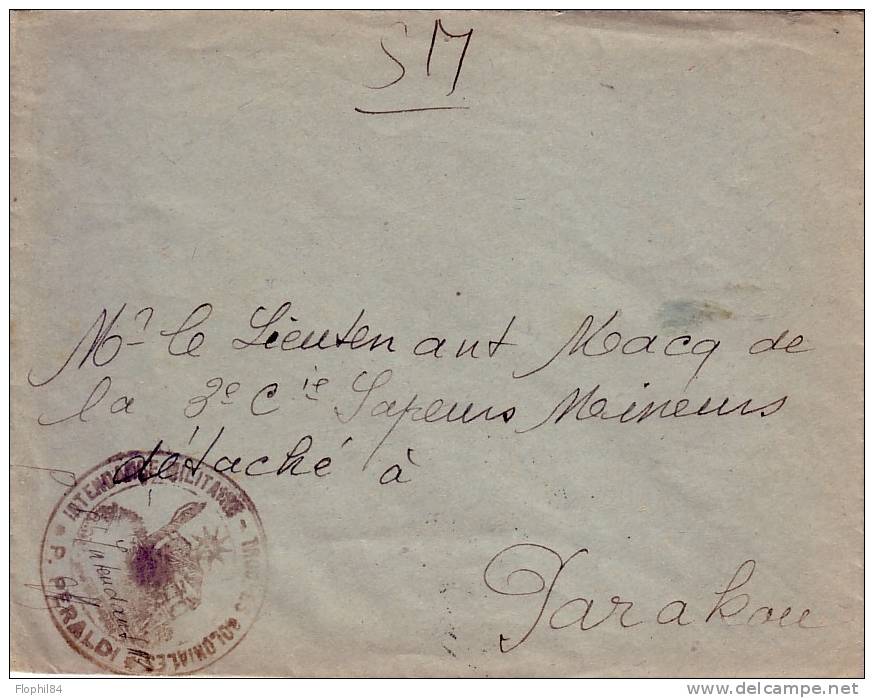 SM
Mr le Lieutenant Macq de
la 3e Cie Sapeurs Mineurs
détaché à
Parakou
INTENDANCE MILITAIRE - TROUPES COLONIALES
* P. PERALDI *
Flophil84
www.delcampe.net